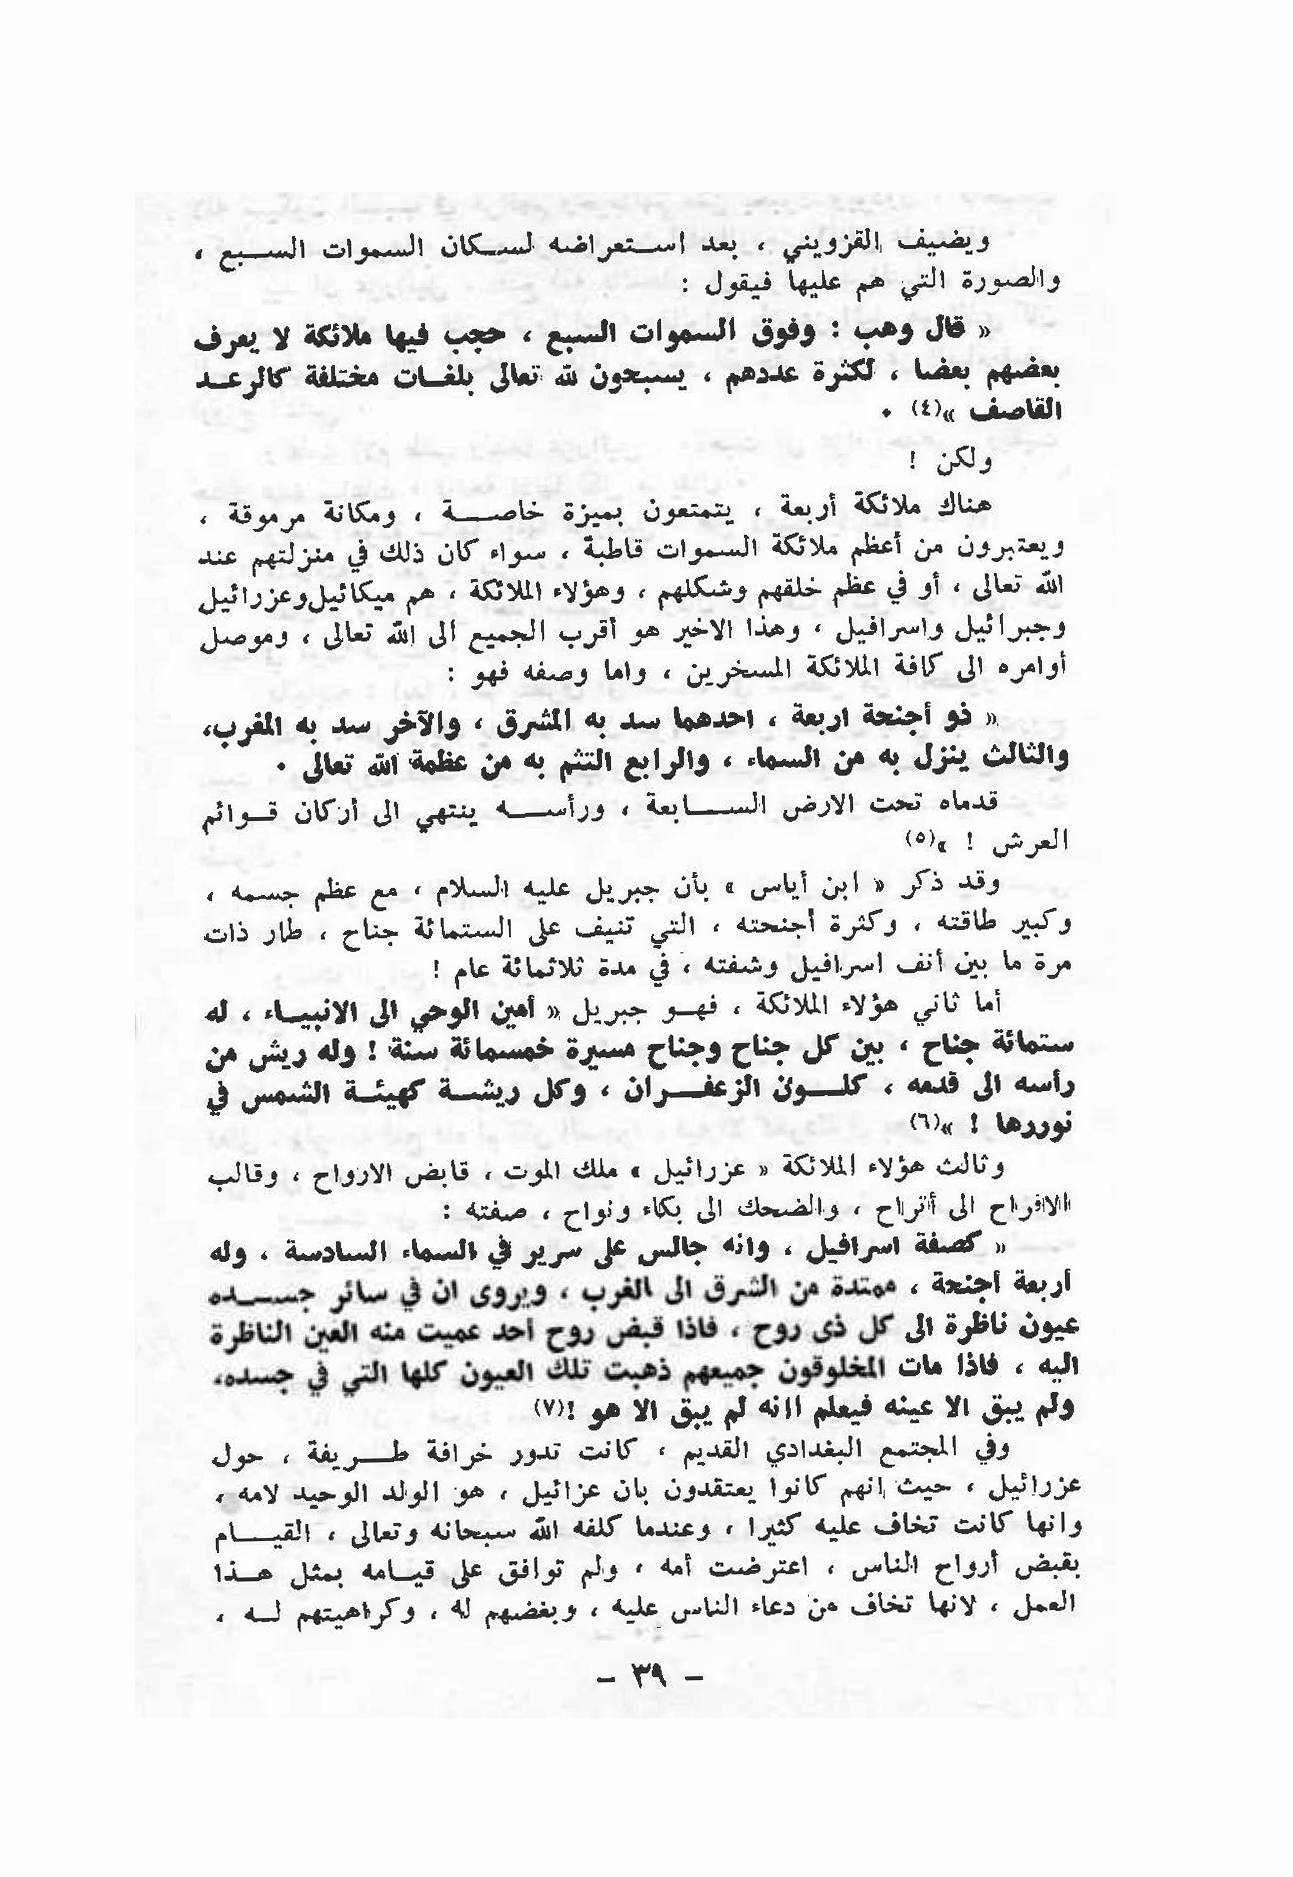 ويضيف القزويني ، بعد استعراضه لسكان السموات السبع ،
والصورة التي هم عليها فيقول :
« قال وهب : وفوق السموات السبع ، حجب فيها ملائكة لا يعرف
بعضهم بعضا ، لكثرة عددهم ، يسبحون لله تعالى بلغات مختلفة كالرعد
القاصف »(٤) .
ولكن !
هناك ملائكة أربعة ، يتمتعون بميزة خاصة ، ومكانة مرموقة ،
ويعتبرون من أعظم ملائكة السموات قاطبة ، سواء كان ذلك في منزلتهم عند
الله تعالى ، أو في عظم خلقهم وشكلهم ، وهؤلاء الملائكة ، هم ميكائيل وعزرائيل
وجبرائيل واسرافيل ، وهذا الاخير هو أقرب الجميع الى الله تعالى ، وموصل
أوامره الى كافة الملائكة المسخرين ، واما وصفه فهو :
« ذو أجنحة اربعة ، احدهما سد به المشرق ، والآخر سد به المغرب،
والثالث ينزل به من السماء ، والرابع التثم به من عظمة الله تعالى .
قدماه تحت الارض السابعة ، ورأسه ينتهي الى أركان قوائم
العرش ! »(٥)
وقد ذكر « ابن أياس » بأن جبريل عليه السلام ، مع عظم جسمه ،
وكبير طاقته ، وكثرة أجنحته ، التي تنيف على الستمائة جناح ، طار ذات
مرة ما بين أنف اسرافيل وشفته ، في مدة ثلاثمائة عام !
أما ثاني هؤلاء الملائكة ، فهو جبريل « أمين الوحي الى الانبياء ، له
ستمائة جناح ، بين كل جناح وجناح مسيرة خمسمائة سنة ! وله ريش من
رأسه الى قدمه ، كلون الزعفران ، وكل ريشة كهيئة الشمس في
نوررها ! »(٦)
وثالث هؤلاء الملائكة « عزرائيل » ملك الموت ، قابض الارواح ، وقالب
الافراح الى أتراح ، والضحك الى بكاء ونواح ، صفته :
« كصفة اسرافيل ، وانه جالس على سرير في السماء السادسة ، وله
أربعة أجنحة ، ممتدة من الشرق الى الغرب ، ويروى ان في سائر جسده
عيون ناظرة الى كل ذى روح ، فاذا قبض روح أحد عميت منه العين الناظرة
اليه ، فاذا مات المخلوقون جميعهم ذهبت تلك العيون كلها التي في جسده،
ولم يبق الا عينه فيعلم اانه لم يبق الا هو !(٧)
وفي المجتمع البغدادي القديم ، كانت تدور خرافة طريفة ، حول
عزرائيل ، حيث انهم كانوا يعتقدون بان عزائيل ، هو الولد الوحيد لامه ،
وانها كانت تخاف عليه كثيرا ، وعندما كلفه الله سبحانه وتعالى ، القيام
بقبض أرواح الناس ، اعترضت أمه ، ولم توافق على قيامه بمثل هذا
العمل ، لانها تخاف من دعاء الناس عليه ، وبغضهم له ، وكراهيتهم له ،
– ٣٩ –